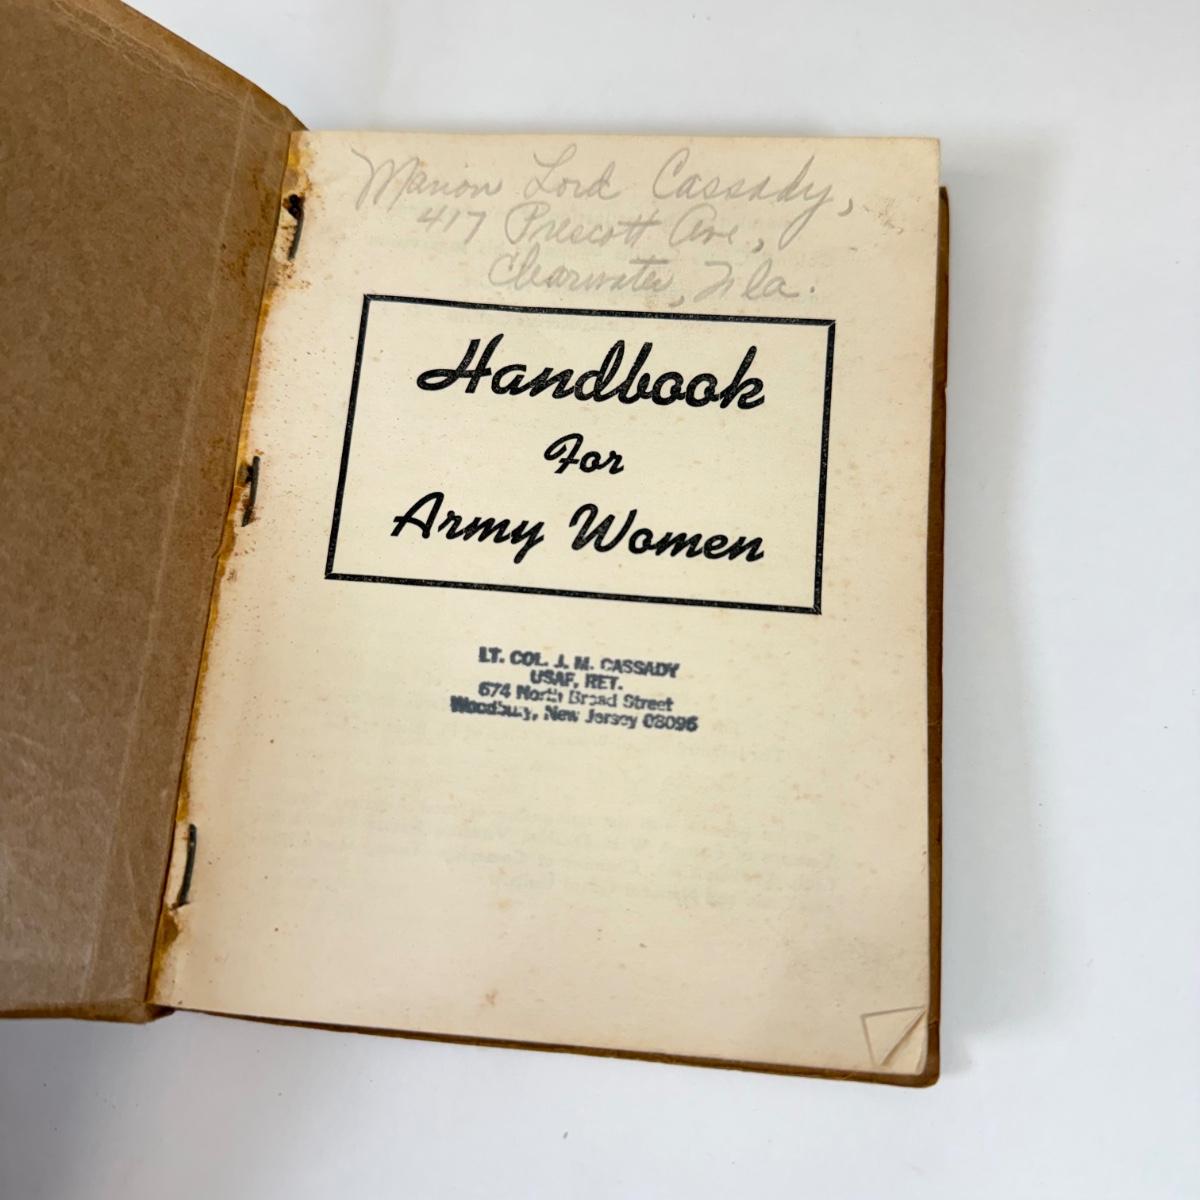 Marion Lord Cassady,
417 Prescott Ave.,
Clearwater, Fla.
Handbook
For
Army Women
LT. COL. J. M. CASSADY
USAF, RET.
674 North Broad Street
Woodbury, New Jersey 08096